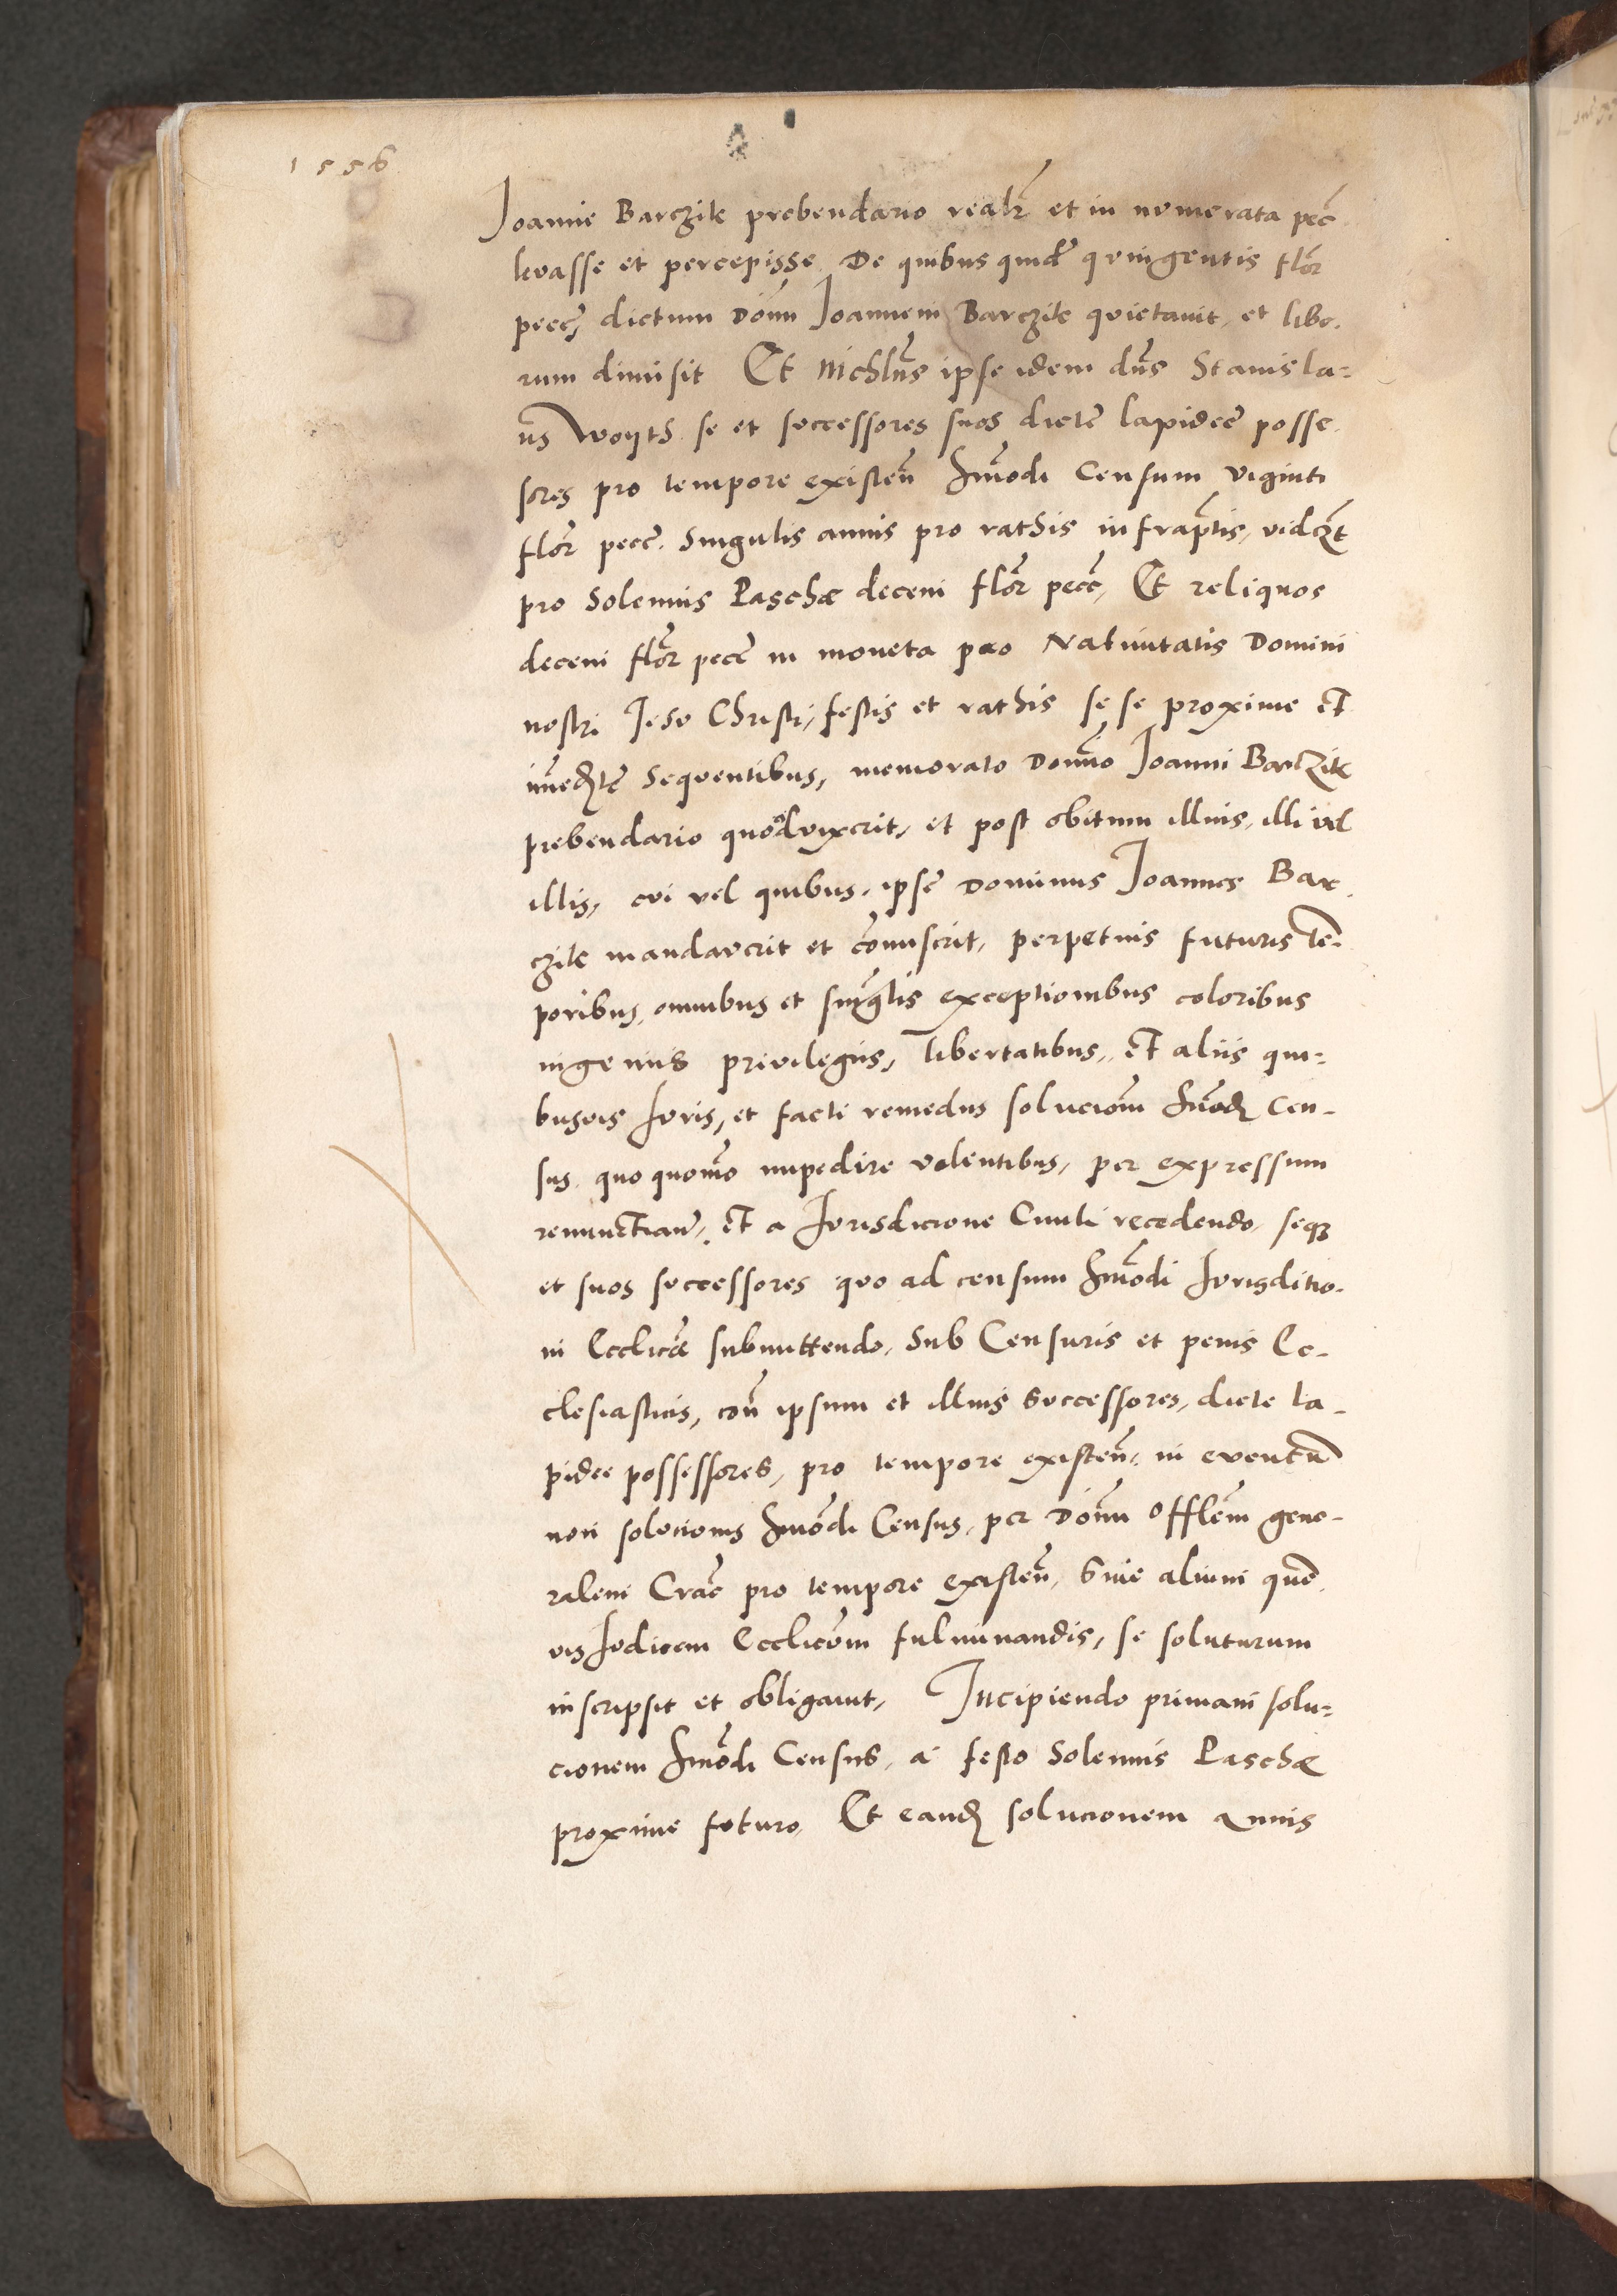 1556
Joanne Barczik prebendario realr̃ et in numerata pecc̃
levasse et percepisse De quibus quidẽ quingentis flor̃
pecc̃, dictum Dom̃ Joannem Barczik quietavit, et libe-
rum dimisit Et nichlm̃s ipse idem dñs Stanisla-
us Woyth se et successores suos dictẽ lapidee posse-
sores pro tempore existeñ hm̃odi Censum viginti
flor̃ pecc̃. Singulis annis pro rathis infrap̃tis, vidczt
pro Solennis Paschæ decem flor̃ pecc̃, Et reliquos
decem flor̃ pecc̃ in moneta pro Nativitatis Domini
nostri Jesv Christi, festis et rathis se se proxime et
im̃edte Sequentibus, memorato Dom̃o Joanni Barczik
prebendario quoad vixerit, et post obitum illius, illi vel
illis, cui vel quibus, ipse Dominus Joannes Bar-
czik mandaverit et com̃iserit, perpetuis futuris tem-
poribus, omnibus et singlis exceptionibus coloribus
ingeniis privilegiis, libertatibus, et aliis qui-
busvis Juris, et facti remediis solucioñ hm̃odi Cen-
sus quo quom̃o impedire volentibus, per expressum
renunctiañ, et a Jurisdicione Civili recedendo, seq3
et suos successores quo ad censum hm̃odi Jurisditio-
ni Ecclicæ submittendo, Sub Censuris et penis Ec-
clesiasticis, coñ ipsum et illius Successores, dicte la-
pidee possessores, pro tempore existeñ, in eventũ
non solucionis hm̃odi Census, per Dom̃ Offlem̃ gene-
ralem Crac̃ pro tempore existeñ, Sive alium quẽ-
vis Judicem Ecclicum̃ fulminandis, se soluturum
inscripsit et obligavit, Incipiendo primam solu-
cionem hm̃odi Census, a festo Solennis Paschæ
proxime futuro, Et eand̃ solucionem annis